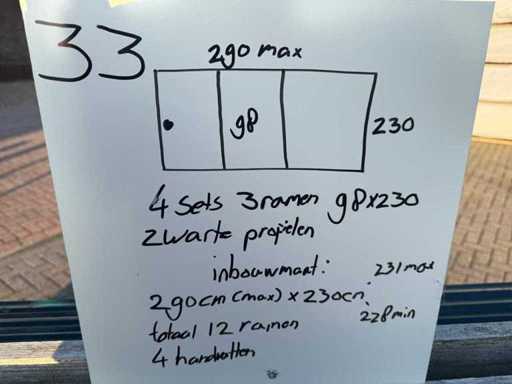 33
290 max
98
230
4 sets 3 ramen 98x230
zwarte profielen
inbouwmaat: 231 max
290cm (max) x 230cm
228 min
totaal 12 ramen
4 handvatten